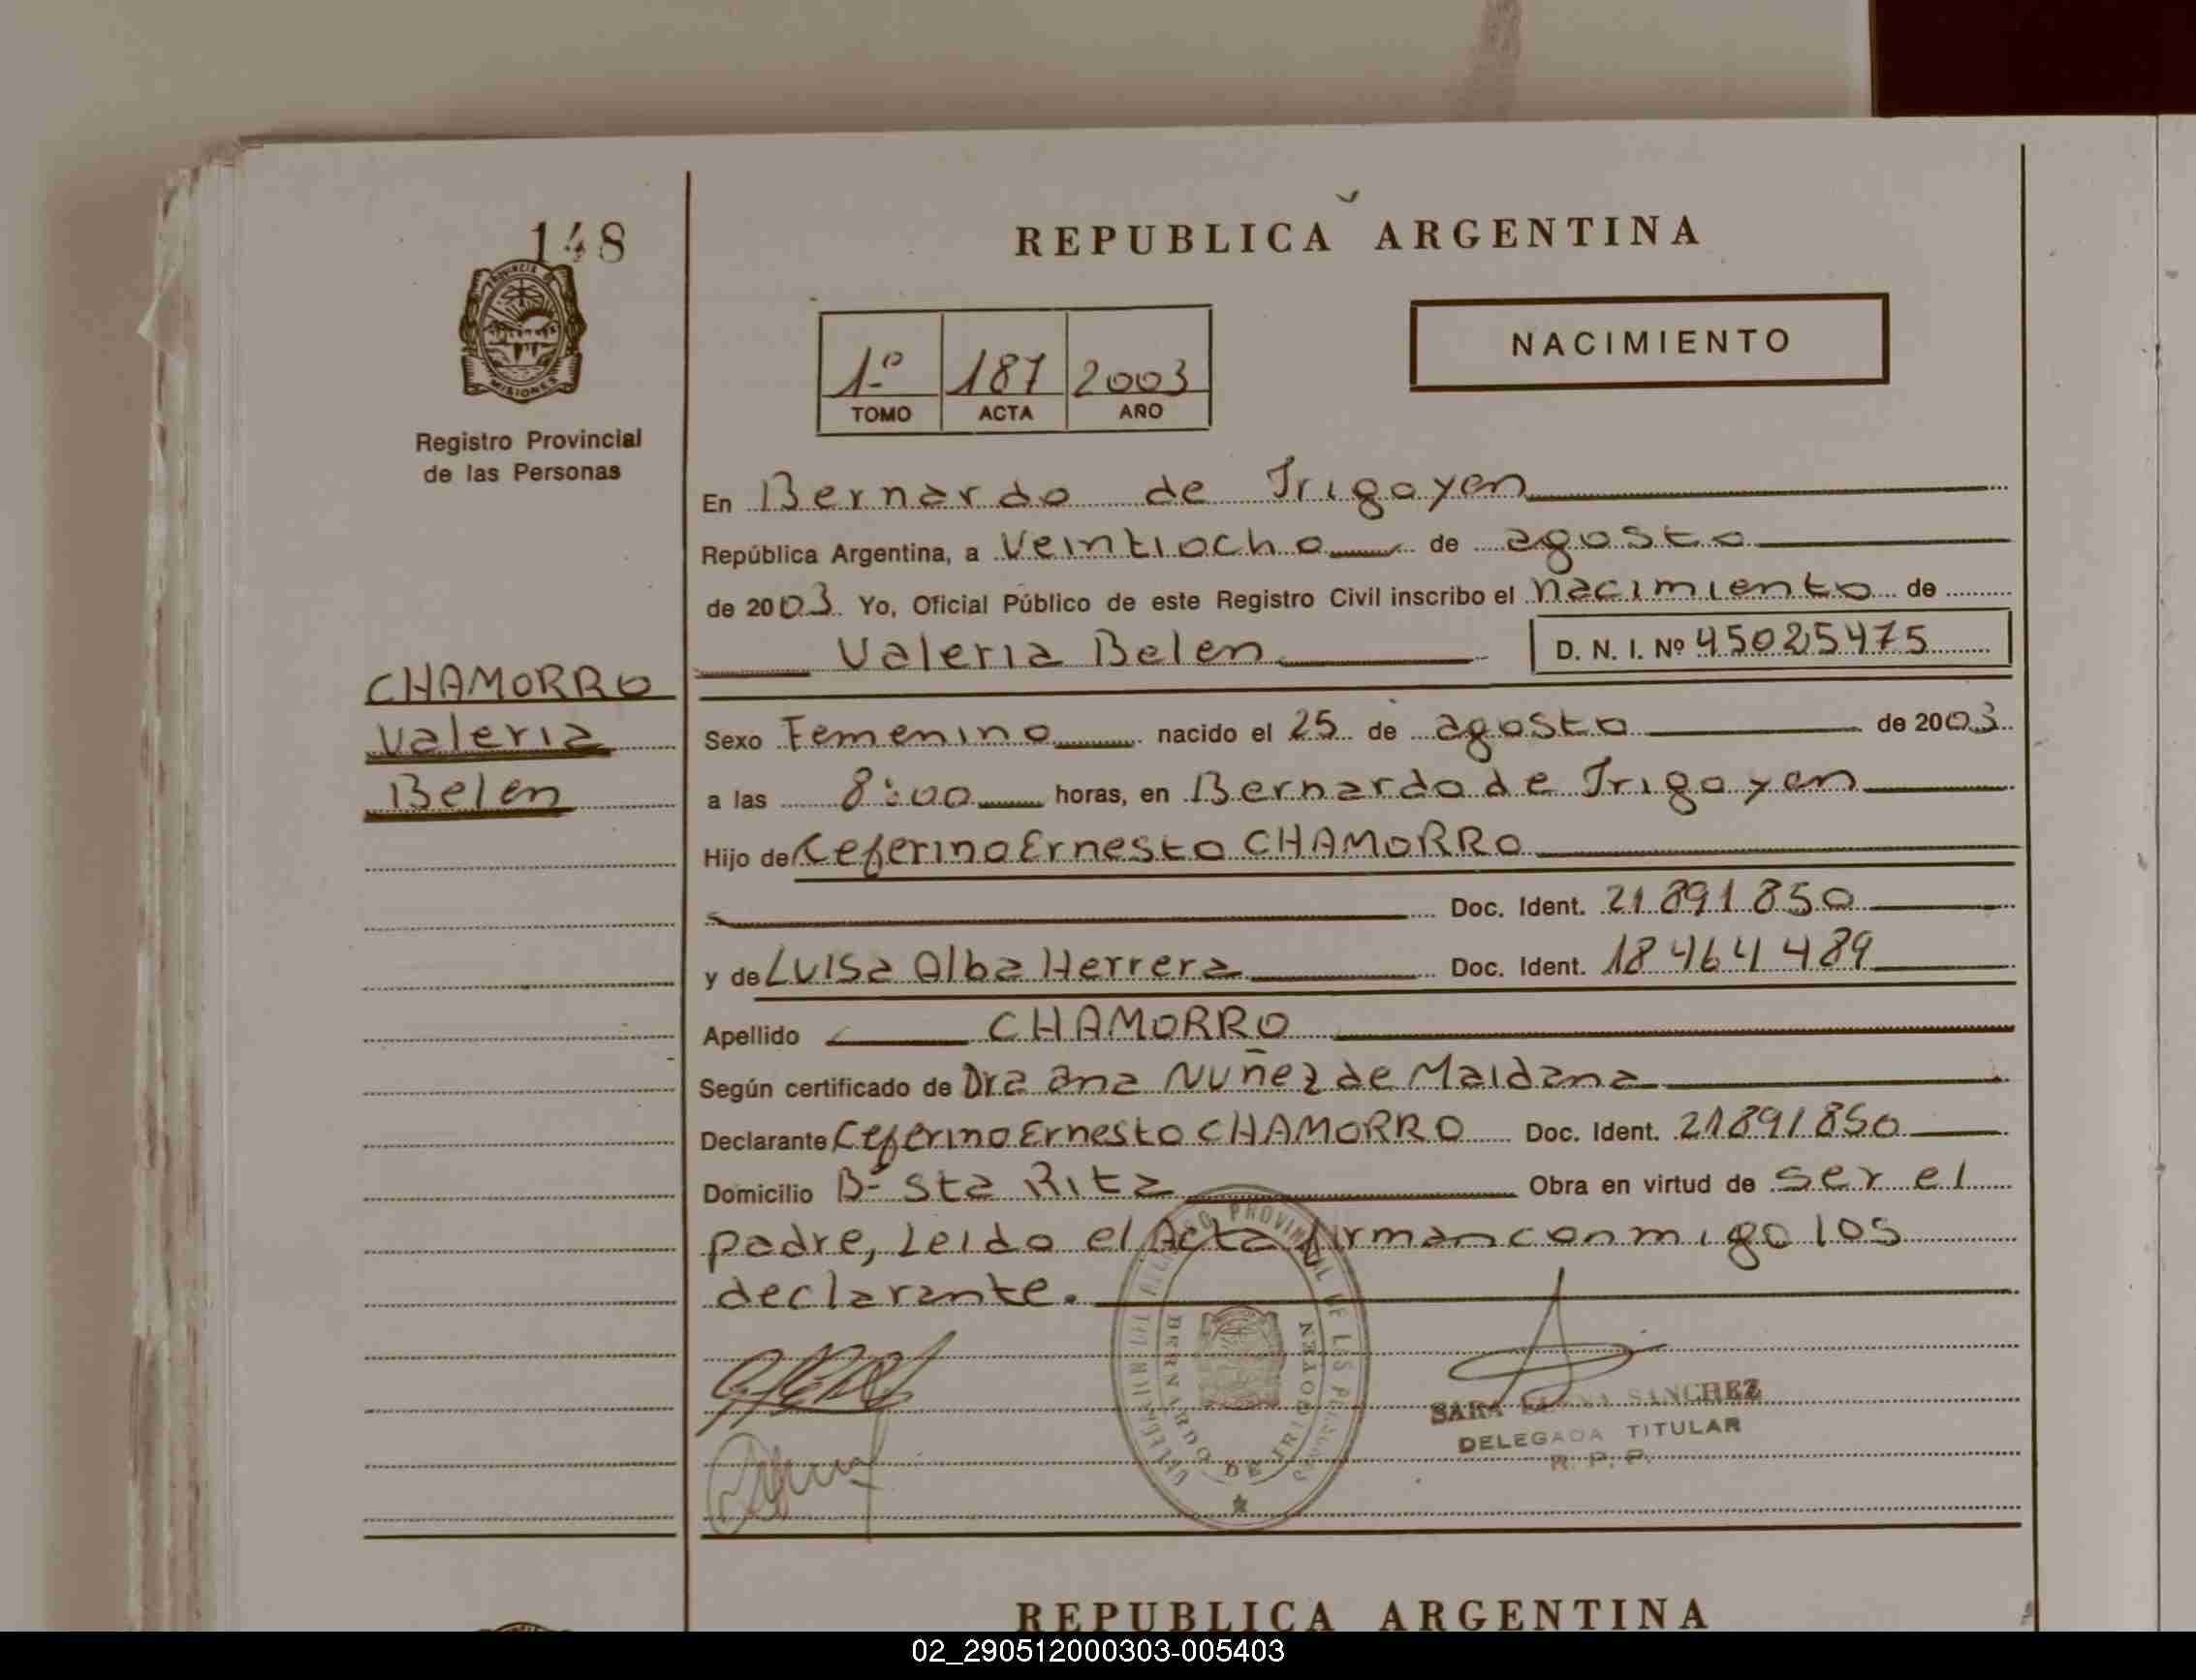 148
PROVINCIA DE
MISIONES
Registro Provincial
de las Personas
CHAMORRO
Valeria
Belen
REPUBLICA ARGENTINA
NACIMIENTO
1º 187 2003
TOMO ACTA AÑO
En Bernardo de Irigoyen
República Argentina, a Veintiocho de agosto
de 2003. Yo, Oficial Público de este Registro Civil inscribo el nacimiento de
Valeria Belen D. N. I. Nº 45025475
Sexo Femenino nacido el 25 de agosto de 2003
a las 8:00 horas, en Bernardo de Irigoyen
Hijo de Ceferino Ernesto CHAMORRO
Doc. Ident. 21891850
y de Luisa Alba Herrera Doc. Ident. 18464489
Apellido CHAMORRO
Según certificado de Dra Ana Nuñez de Maidana
Declarante Ceferino Ernesto CHAMORRO Doc. Ident. 21891850
Domicilio Bº Sta Rita Obra en virtud de ser el
padre, Leido el Acta firman conmigo los
declarante.
PROVINCIAL DE LAS
BERNARDO DE IRIGOYEN
SARA ELENA SANCHEZ
DELEGADA TITULAR
R. P. P.
REPUBLICA ARGENTINA
02_290512000303-005403